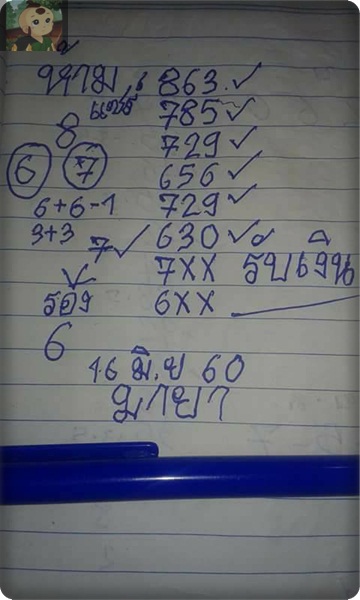 ห้าม : 863 ✓
แชร์ 785 ✓
8 729 ✓
6 7 656 ✓
6+6-1 729 ✓
3+3 7 ✓ 630 ✓
7XX รับเงิน
รอง 6XX
6
16 มิ.ย 60
มายา